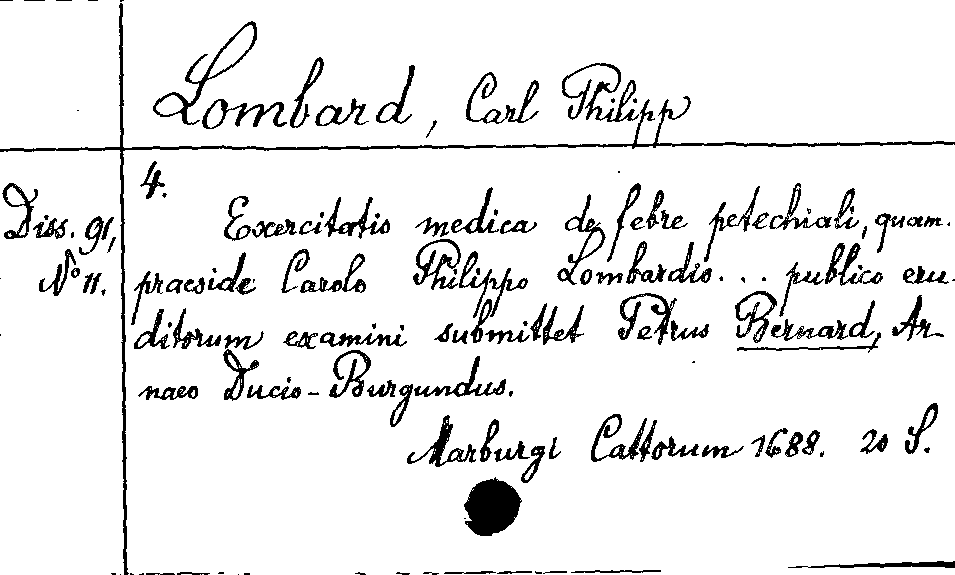 Lombard, Carl Philipp
4.
Diss. 91, Exercitatio medica de febre petechiali, quam
No 11. praeside Carolo Philippo Lombardio... publico eru-
ditorum examini submittet Petrus Bernard, Ar-
naeo Ducio-Burgundus.
Marburgi Cattorum 1688. 20 S.